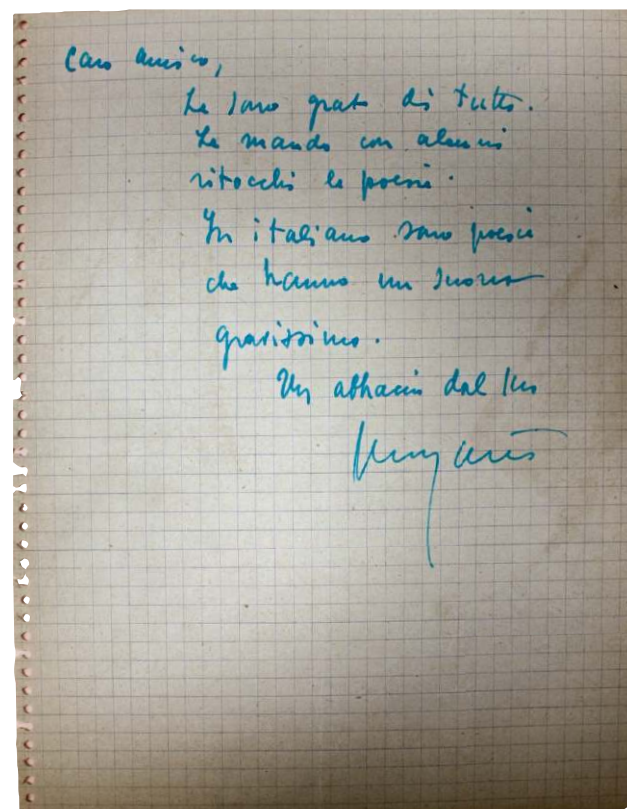 Caro amico,
Le sono grato di tutto.
Le mando con alcuni
ritocchi le poesie.
In italiano sono poesie
che hanno un suono
gravissimo.
Un abbraccio dal suo
Ungaretti